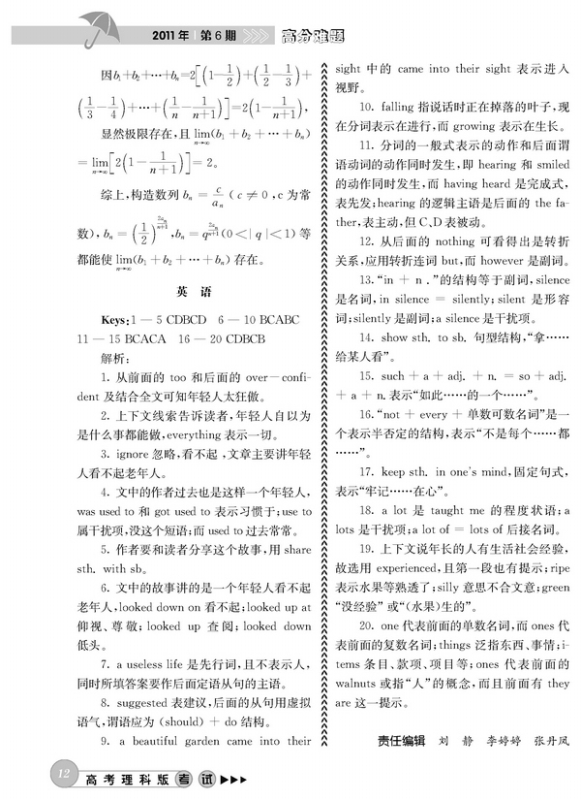 2011年 第6期
高分难题
因b₁+b₂+…+bₙ=2[(1-1/2)+(1/2-1/3)+
(1/3-1/4)+…+(1/n-1/(n+1))]=2(1-1/(n+1)),
显然极限存在,且 lim(n→∞)(b₁+b₂+…+bₙ)
=lim(n→∞)[2(1-1/(n+1))]=2。
综上,构造数列 bₙ=c/aₙ(c≠0,c为常
数),bₙ=(1/2)^(2aₙ/(n+1)),bₙ=q^(2aₙ/(n+1))(0<|q|<1)等
都能使 lim(n→∞)(b₁+b₂+…+bₙ)存在。
英 语
Keys:1—5 CDBCD 6—10 BCABC
11—15 BCACA 16—20 CDBCB
解析:
1. 从前面的 too 和后面的 over—confi-
dent 及结合全文可知年轻人太狂傲。
2. 上下文线索告诉读者,年轻人自以为
是什么事都能做,everything 表示一切。
3. ignore 忽略,看不起,文章主要讲年轻
人看不起老年人。
4. 文中的作者过去也是这样一个年轻人,
was used to 和 got used to 表示习惯于;use to
属干扰项,没这个短语;而 used to 过去常常。
5. 作者要和读者分享这个故事,用 share
sth. with sb。
6. 文中的故事讲的是一个年轻人看不起
老年人,looked down on 看不起;looked up at
仰视、尊敬;looked up 查阅;looked down
低头。
7. a useless life 是先行词,且不表示人,
同时所填答案要作后面定语从句的主语。
8. suggested 表建议,后面的从句用虚拟
语气,谓语应为 (should) + do 结构。
9. a beautiful garden came into their
sight 中的 came into their sight 表示进入
视野。
10. falling 指说话时正在掉落的叶子,现
在分词表示在进行,而 growing 表示在生长。
11. 分词的一般式表示的动作和后面谓
语动词的动作同时发生,即 hearing 和 smiled
的动作同时发生,而 having heard 是完成式,
表先发;hearing 的逻辑主语是后面的 the fa-
ther,表主动,但 C、D 表被动。
12. 从后面的 nothing 可看得出是转折
关系,应用转折连词 but,而 however 是副词。
13.“in + n .”的结构等于副词,silence
是名词,in silence = silently;silent 是形容
词;silently 是副词;a silence 是干扰项。
14. show sth. to sb. 句型结构,“拿……
给某人看”。
15. such + a + adj. + n. = so + adj.
+ a + n. 表示“如此……的一个……”。
16.“not + every + 单数可数名词”是一
个表示半否定的结构,表示“不是每个……都
……”。
17. keep sth. in one's mind,固定句式,
表示“牢记……在心”。
18. a lot 是 taught me 的程度状语;a
lots 是干扰项;a lot of = lots of 后接名词。
19. 上下文说年长的人有生活社会经验,
故选用 experienced,且第一段也有提示;ripe
表示水果等熟透了;silly 意思不合文意;green
“没经验” 或“(水果)生的”。
20. one 代表前面的单数名词,而 ones 代
表前面的复数名词;things 泛指东西、事情;i-
tems 条目、款项、项目等;ones 代表前面的
walnuts 或指“人”的概念,而且前面有 they
are 这一提示。
责任编辑 刘 静 李婷婷 张丹凤
12
高考理科版 考试